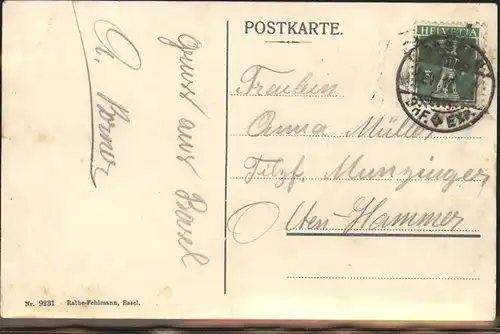 POSTKARTE.
HELVETIA
Gruss aus Basel
A. Borner
Fraulein
Anna Müller
Filzf. Munzinger
Olten-Hammer
Nr. 9231 Rathe-Fehlmann, Basel.